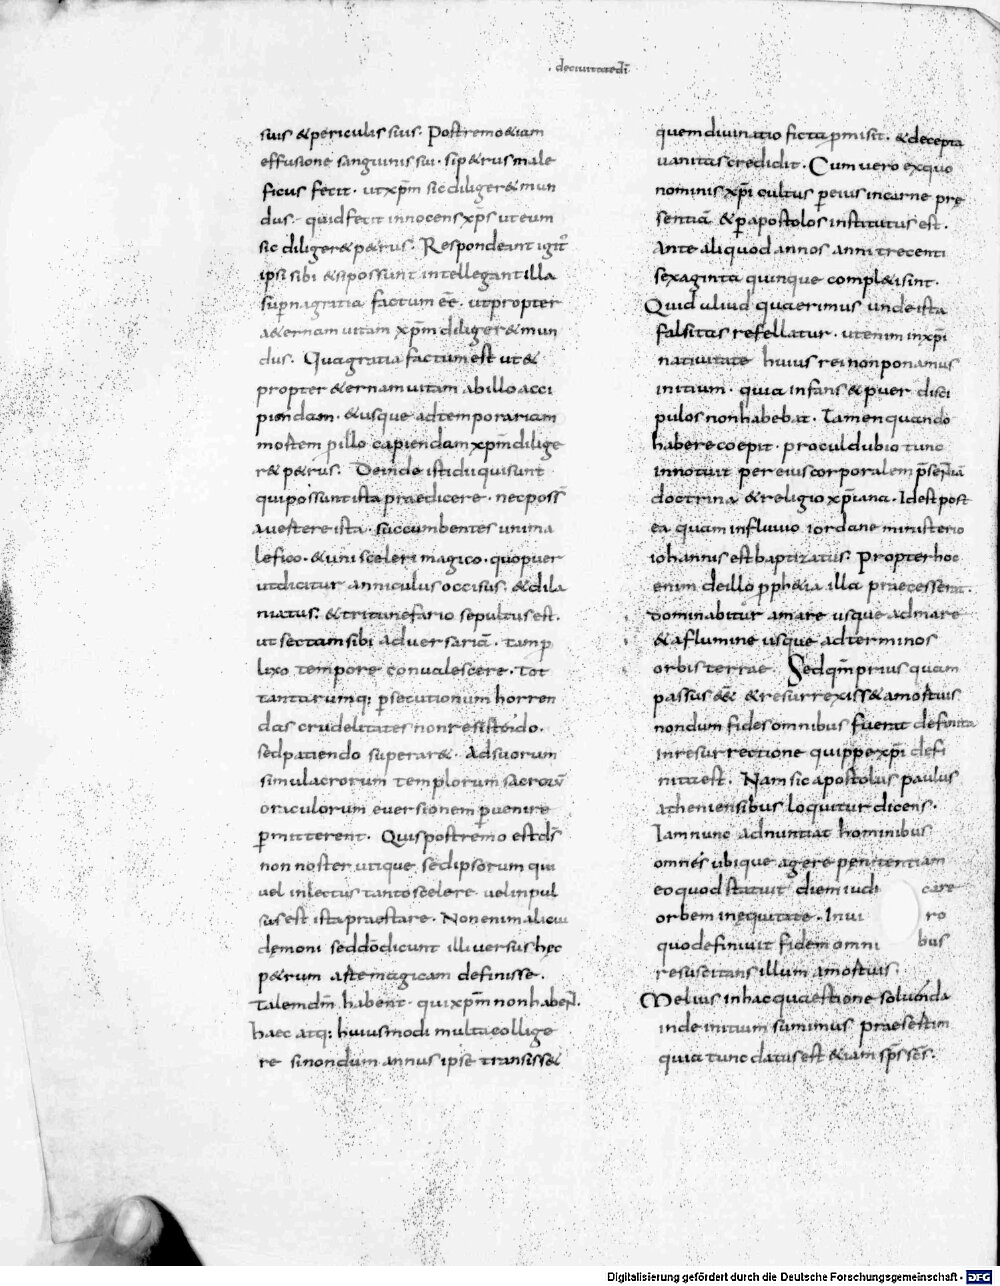 deciuitatedī
suis &periculis suis. Postremo&iam
effusione sanguinis sui. sip&rus male
ficus fecit. utxp̄m sic diliger&mun
dus. quidfecit innocens xp̄s ut eum
sic diliger&p&rus. Respondeant igit̄
ipsi sibi &sipossunt intellegant illa
sup̄nagratia factum eē. utpropter
a&ernam uitam xp̄m diliger&mun
dus. Quagratia factum est ut &
propter &ernamuitam abillo acci
piendam. &usque adtemporariam
mortem p̄ illo capiendam xp̄m dilige
r& p&rus. Deinde isti dii quisunt
quipossunt ista praedicere. necposs̄
auertere ista. succumbentes unima
lefico. &uni sceleri magico. quopuer
utdicitur anniculus occisus. &dila
niatus. &ritu nefario sepultus est.
ut sectamsibi aduersariā. tamp̄
lixo tempore conualescere. tot
tantarumq: p̄secutionum horren
das crudelitates nonresistendo.
sedpatiendo superar&. Adsuorum
simulacrorum templorum sacrorū
oraculorum euersionem p̄uenire
p̄mitterent. Quispostremo est d̄s
non noster utique sedipsorum qui
uel inlectus tantoscelere uel inpul
sus est ista praestare. Nonenim alicui
demoni seddōdicunt illi uersus hęc
p&rum arte magicam definisse.
Talemdm̄ habent. quixp̄m non haben̄.
haec atq: huiusmodi multa collige
re sinondum annus ipse transiss&
quem diuinatio ficta p̄misit. &decepta
uanitas credidit. Cum uero exquo
nominis xp̄i cultus p̄eius incarne prę
sentiā &p̄apostolos institutus est.
Ante aliquod annos anni trecenti
sexaginta quinque compl&isint.
Quid aliud quaerimus unde ista
falsitas refellatur. utenim inxp̄i
natiuitate huius rei nonponamus
initium. quia infans &puer disci
pulos nonhabebat. Tamen quando
habere coepit. proculdubio tunc
innotuit per eius corporalem p̄sentiā
doctrina &religio xp̄iana. Idest post
ea quam influuio iordane ministerio
iohannis est baptizatus. Propterhoc
enim deillo p̄ph&ia illa praecesserat.
Dominabitur amare usque admare
& aflumine usque adterminos
orbisterrae. Sedqm̄ prius quam
passus eēt &resurrexiss&amortuis
nondum fidesomnibus fuerat definita
Inresurrectione quippe xp̄i defi
nitaest. Nam sic apostolus paulus
atheniensibus loquitur dicens.
Iamnunc adnuntiat hominibus
omnes ubique agere penitentiam
eoquod statuit diem iudi care
orbem inequitate. Inui ro
quodefiniuit fidem omni bus
resuscitans illum amortuis.
Melius inhac quaestione soluenda
inde initium sumimus praesertim
quia tunc datus est &iam sp̄s sēs.
Digitalisierung gefördert durch die Deutsche Forschungsgemeinschaft - DFG